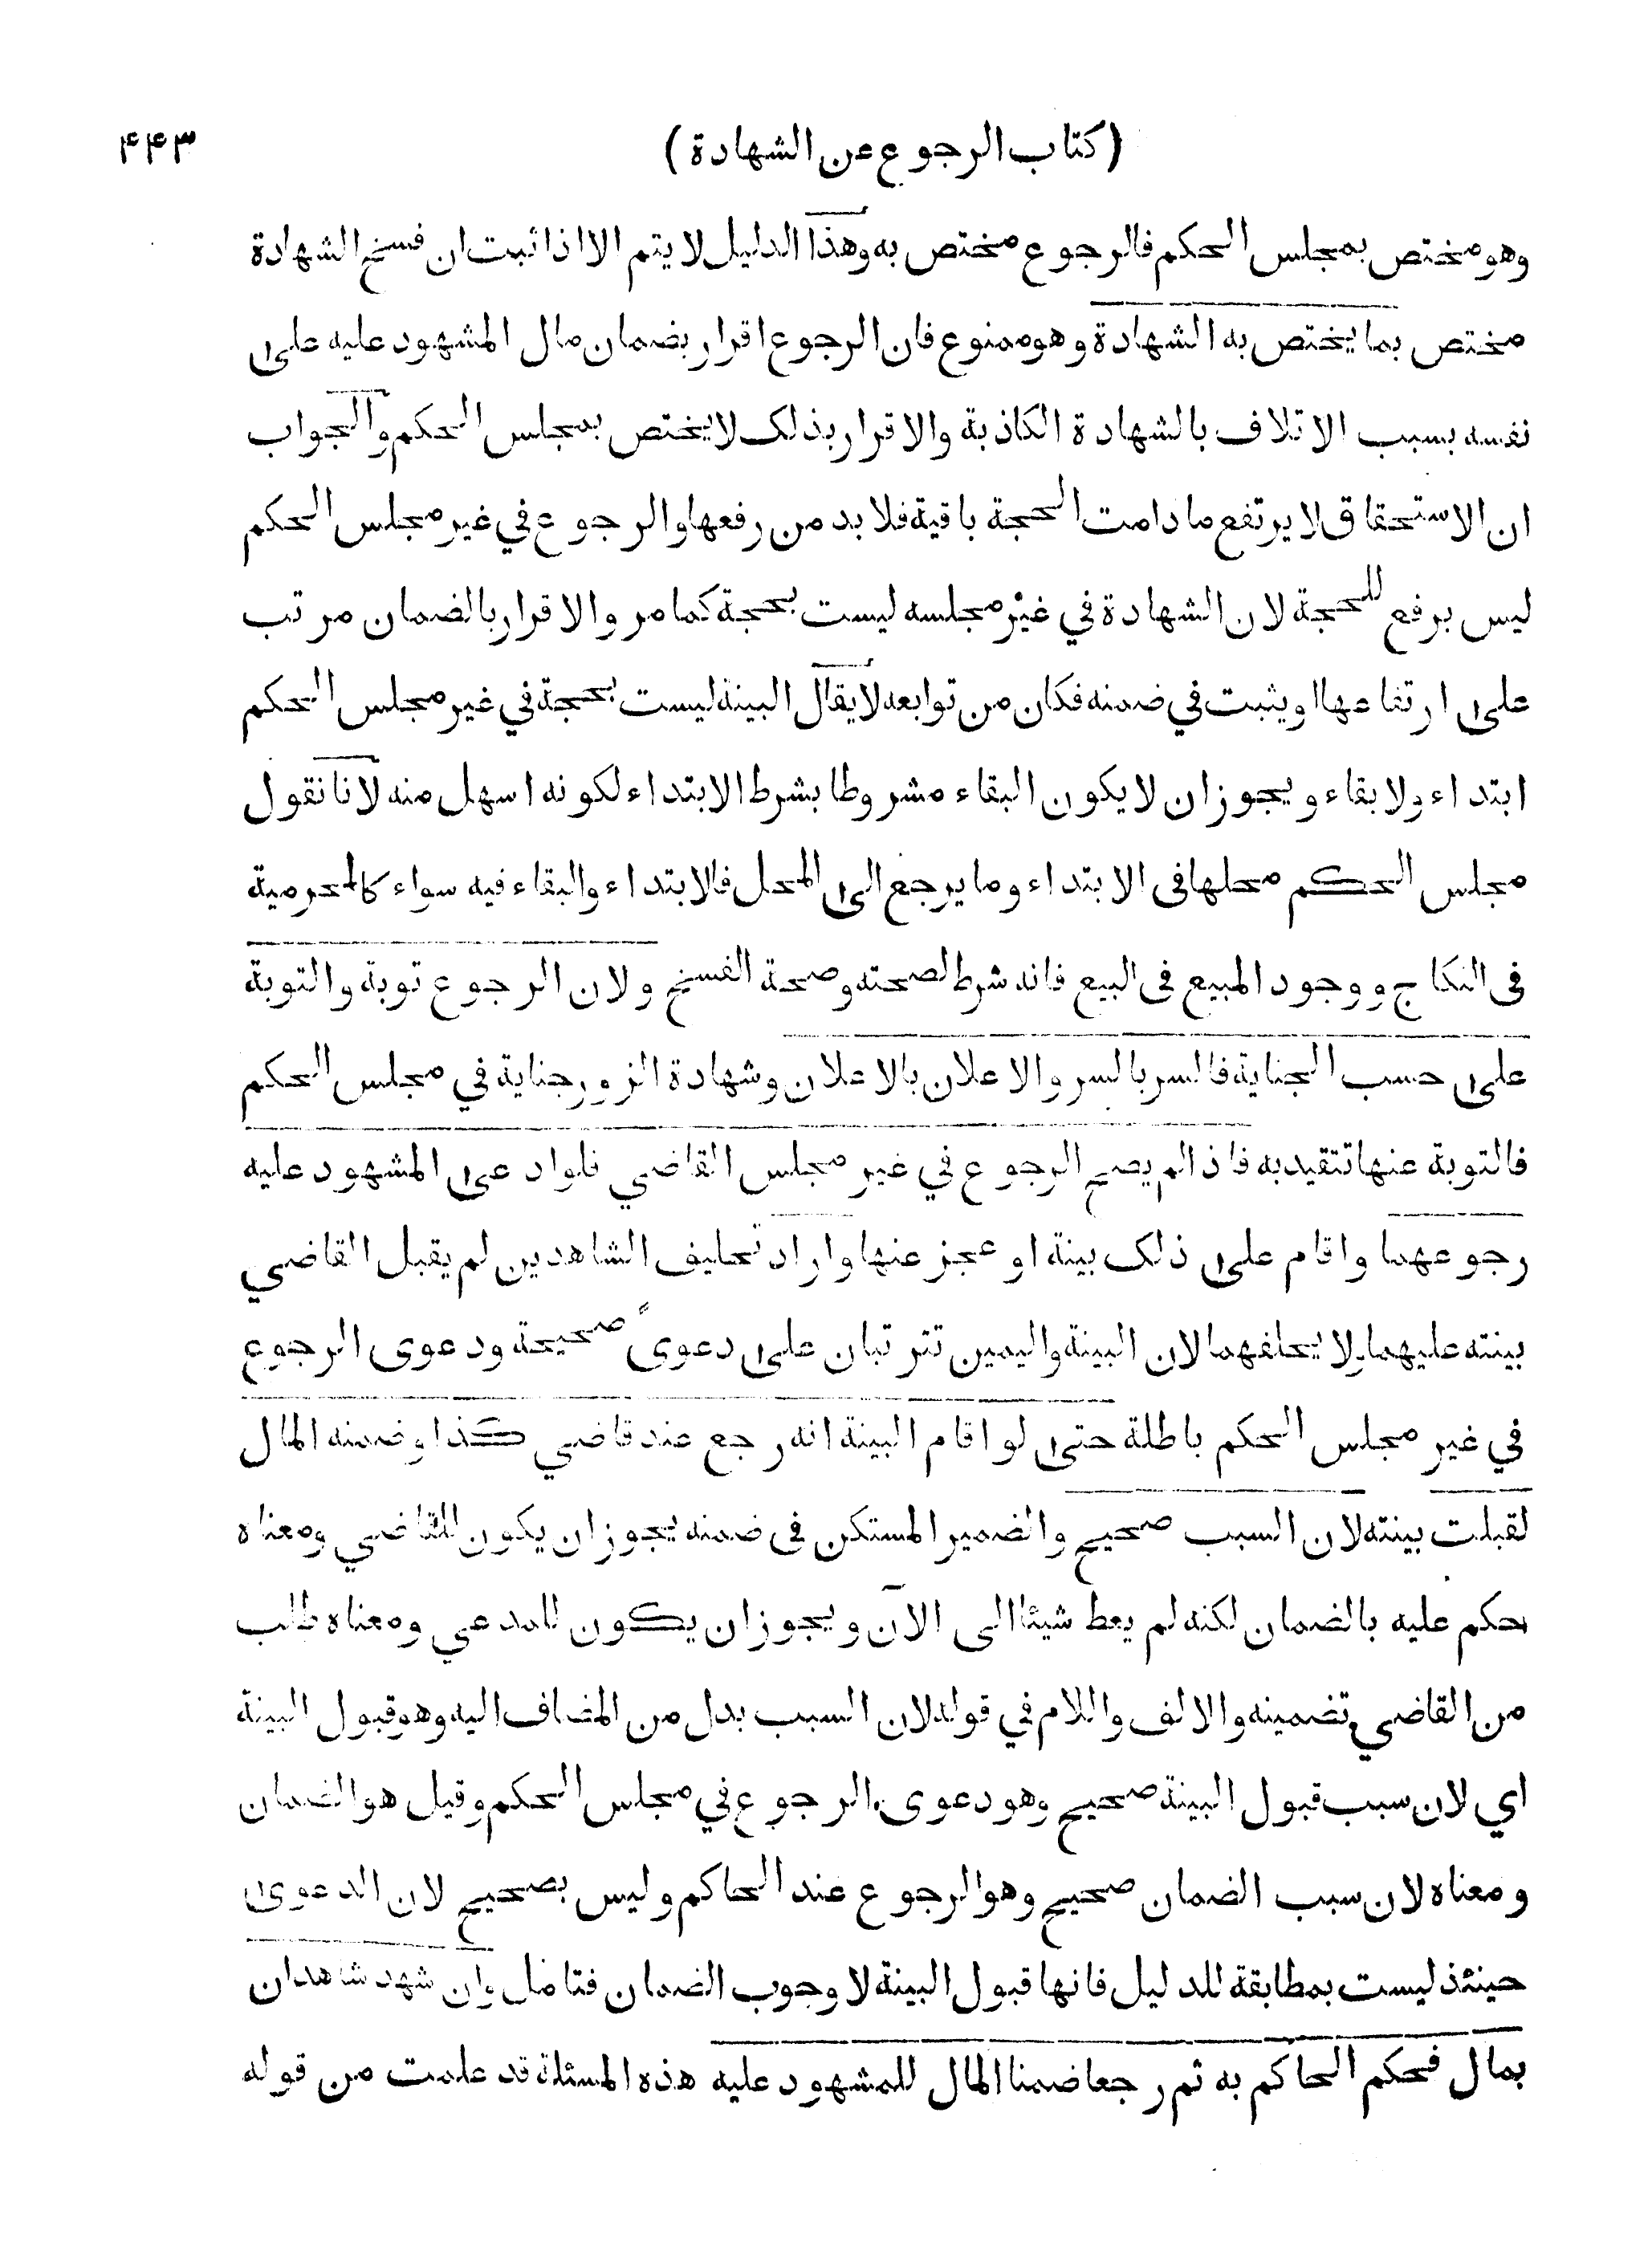 (كتاب الرجوع عن الشهادة) ۴۴۳
وهو مختص بمجلس الحكم فالرجوع مختص به وهذا الدليل لا يتم الا اذا ثبت ان فسخ الشهادة
مختص بما يختص به الشهادة وهو ممنوع فان الرجوع اقرار بضمان مال المشهود عليه على
نفسه بسبب الاتلاف بالشهادة الكاذبة والاقرار بذلك لا يختص بمجلس الحكم والجواب
ان الاستحقاق لا يرتفع ما دامت الحجة باقية فلا بد من رفعها والرجوع في غير مجلس الحكم
ليس برفع للحجة لان الشهادة في غير مجلسه ليست بحجة كما مر والاقرار بالضمان مرتب
على ارتفاعها او يثبت في ضمنه فكان من توابعه لا يقال البينة ليست بحجة في غير مجلس الحكم
ابتداء ولا بقاء و يجوز ان لا يكون البقاء مشروطا بشرط الابتداء لكونه اسهل منه لانا نقول
مجلس الحكم محلها فى الابتداء وما يرجع الى المحل فالابتداء والبقاء فيه سواء كالمحرمية
فى النكاح ووجود المبيع فى البيع فانه شرط لصحته وصحة الفسخ ولان الرجوع توبة والتوبة
على حسب الجناية فالسر بالسر والاعلان بالاعلان وشهادة الزور جناية في مجلس الحكم
فالتوبة عنها تتقيد به فاذا لم يصح الرجوع في غير مجلس القاضي فلو ادعى المشهود عليه
رجوعهما واقام على ذلك بينة او عجز عنها واراد تحليف الشاهدين لم يقبل القاضي
بينته عليهما ولا يحلفهما لان البينة واليمين تترتبان على دعوىً صحيحة ودعوى الرجوع
في غير مجلس الحكم باطلة حتى لو اقام البينة انه رجع عند قاضي كذا وضمنه المال
لقبلت بينته لان السبب صحيح والضمير المستكن فى ضمنه يجوز ان يكون للقاضي ومعناه
حكم عليه بالضمان لكنه لم يعط شيئا الى الآن ويجوز ان يكون للمدعي ومعناه طلب
من القاضي تضمينه والالف واللام في قوله لان السبب بدل من المضاف اليه وهو قبول البينة
اي لان سبب قبول البينة صحيح وهو دعوى الرجوع في مجلس الحكم وقيل هو الضمان
ومعناه لان سبب الضمان صحيح وهو الرجوع عند الحاكم وليس بصحيح لان الدعوى
حينئذ ليست بمطابقة للدليل فانها قبول البينة لا وجوب الضمان فتامل وان شهد شاهدان
بمال فحكم الحاكم به ثم رجعا ضمنا المال للمشهود عليه هذه المسئلة قد علمت من قوله